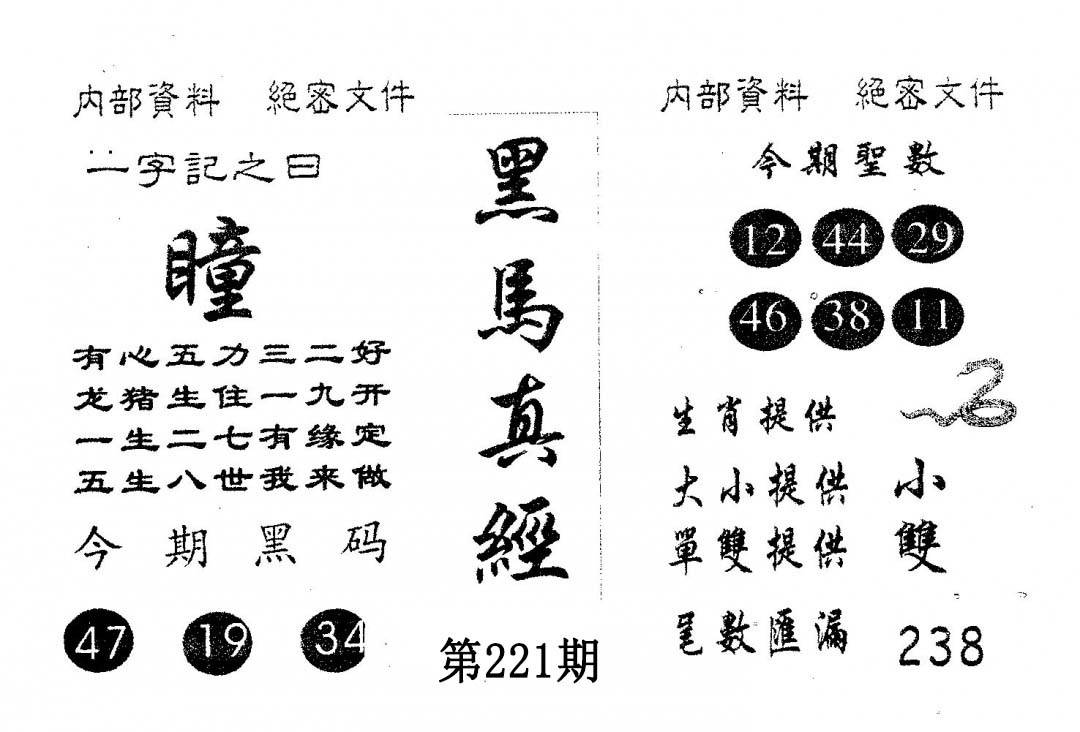 內部資料　絕密文件
一字記之曰
瞳
有心五力三二好
龙猪生住一九开
一生二七有缘定
五生八世我来做
今期黑码
47 19 34
黑馬真經
第221期
內部資料　絕密文件
今期聖數
12 44 29
46 38 11
生肖提供
大小提供 小
單雙提供 雙
尾數匯漏 238